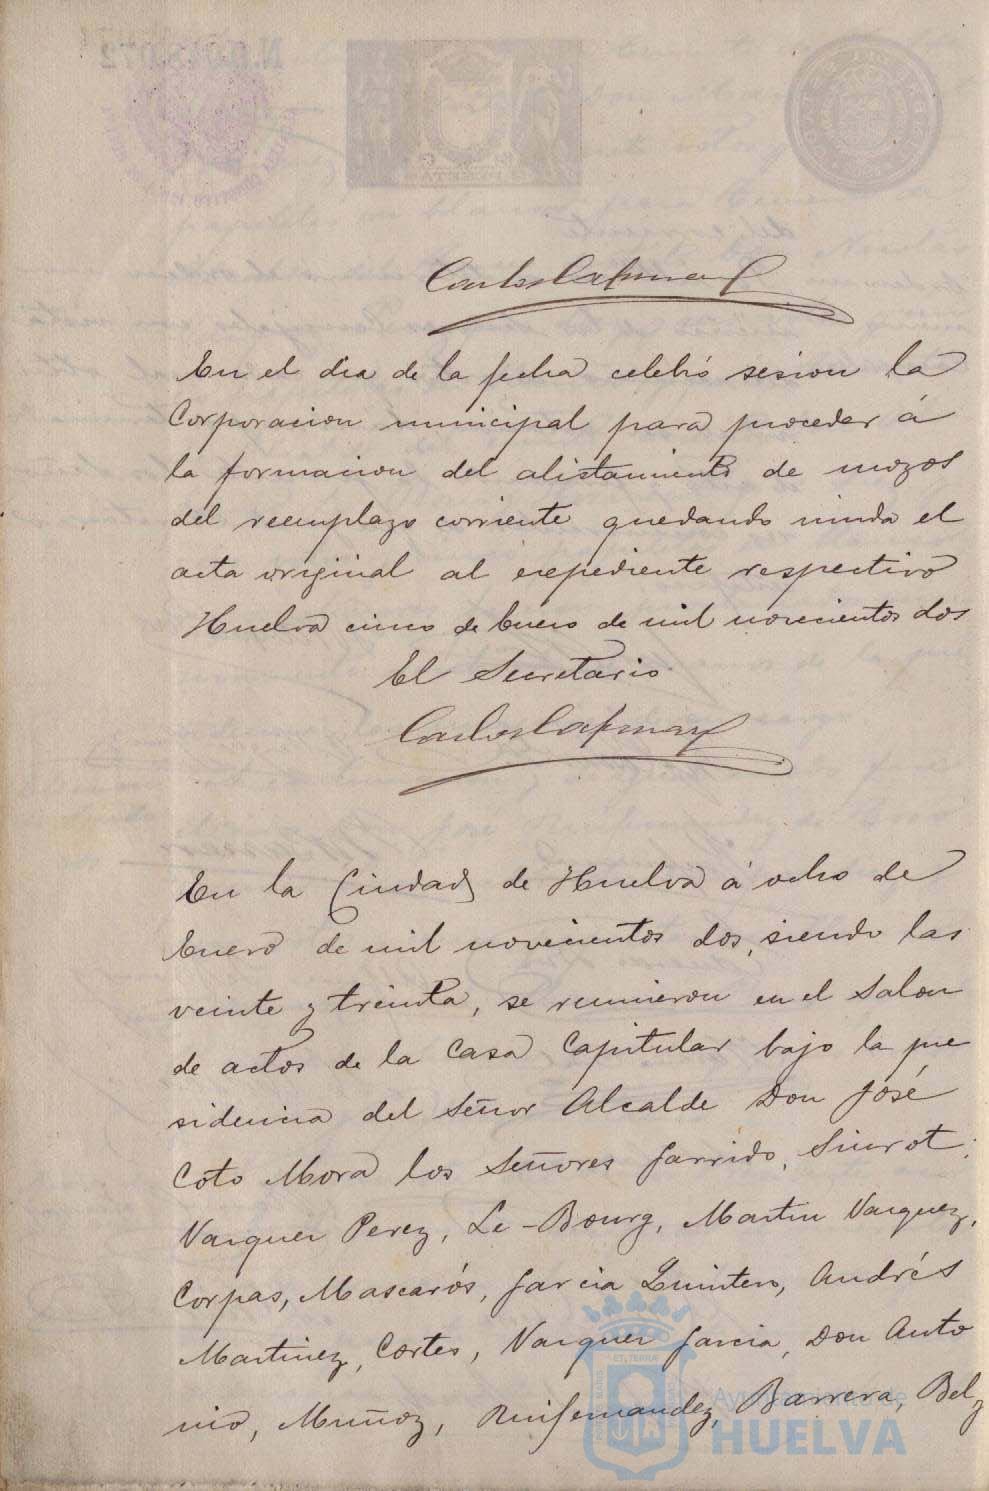 Carlos Cafmany
En el dia de la fecha celebró sesion la
Corporacion municipal para proceder á
la formacion del alistamiento de mozos
del reemplazo corriente quedando unida el
acta original al expediente respectivo
Huelva cinco de Enero de mil novecientos dos
El Secretario
Carlos Cafmany
En la Ciudad de Huelva á ocho de
Enero de mil novecientos dos, siendo las
veinte y treinta, se reunieron en el Salon
de actos de la Casa Capitular bajo la pre
sidencia del Señor Alcalde Don José
Coto Mora los Señores Garrido, Siurot,
Vazquez Perez, Le-Bourg, Martin Vazquez,
Corpas, Mascarós, Garcia Quintero, Andrés
Martinez, Cortes, Vazquez Garcia, Don Anto
nio, Muñoz, Ruifernandez, Barrera, Bel
Ayuntamiento de
HUELVA